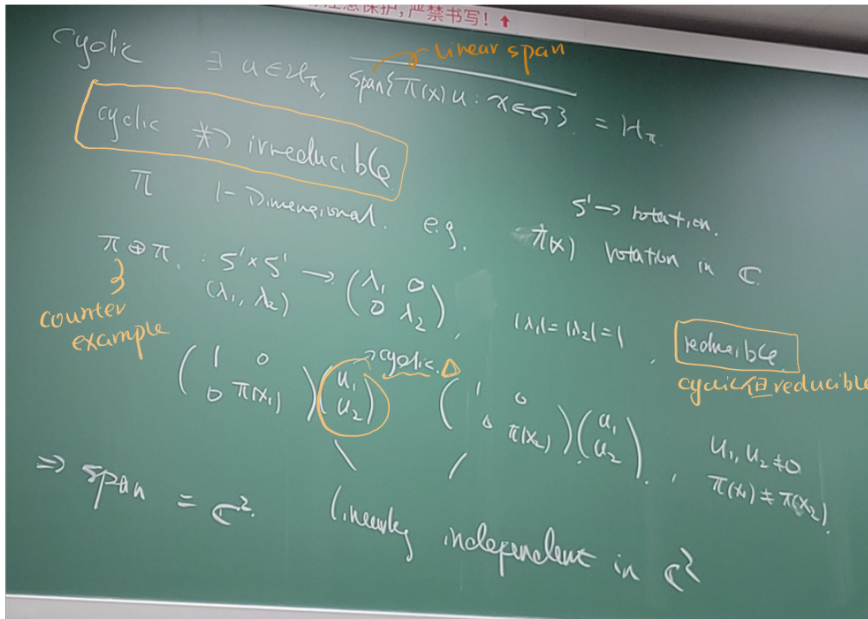 保护,严禁书写!
linear span
cyclic ∃ u ∈ H_π, \overline{span{π(x)u : x ∈ G}} = H_π.
cyclic ⇏ irreducible
π 1-Dimensional. e.g. S' → rotation.
π(x) rotation in ℂ
π ⊕ π. : S' × S' → \begin{pmatrix} λ_1 & 0 \\ 0 & λ_2 \end{pmatrix}, |λ_1| = |λ_2| = 1, reducible.
(λ_1, λ_2)
counter
example
cyclic但reducible
→ cyclic. △
\begin{pmatrix} 1 & 0 \\ 0 & π(x_1) \end{pmatrix} \begin{pmatrix} u_1 \\ u_2 \end{pmatrix} \begin{pmatrix} 1 & 0 \\ 0 & π(x_2) \end{pmatrix} \begin{pmatrix} u_1 \\ u_2 \end{pmatrix}. , u_1, u_2 ≠ 0
π(x_1) ≠ π(x_2)
⇒ span = ℂ². linearly independent in ℂ²